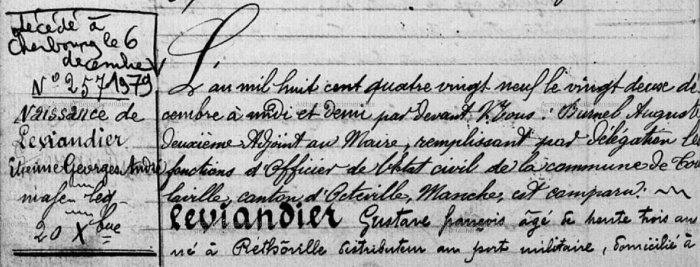 décédé à
Cherbourg le 6
decembre
N° 257 1979
Naissance de
Leviandier
Etienne Georges André
masc. leg.
20 Xbre
L'an mil huit cent quatre vingt neuf le vingt deux dé
cembre à midi et demi par devant Nous: Burnel August
deuxième Adjoint au Maire, remplissant par délégation les
fonctions d'Officier de l'état civil de la commune de Tour
laville, canton d'Octeville, Manche, est comparu:
Leviandier Gustave françois âgé de trente trois ans
né à Rethôville distributeur au port militaire, domicilié à